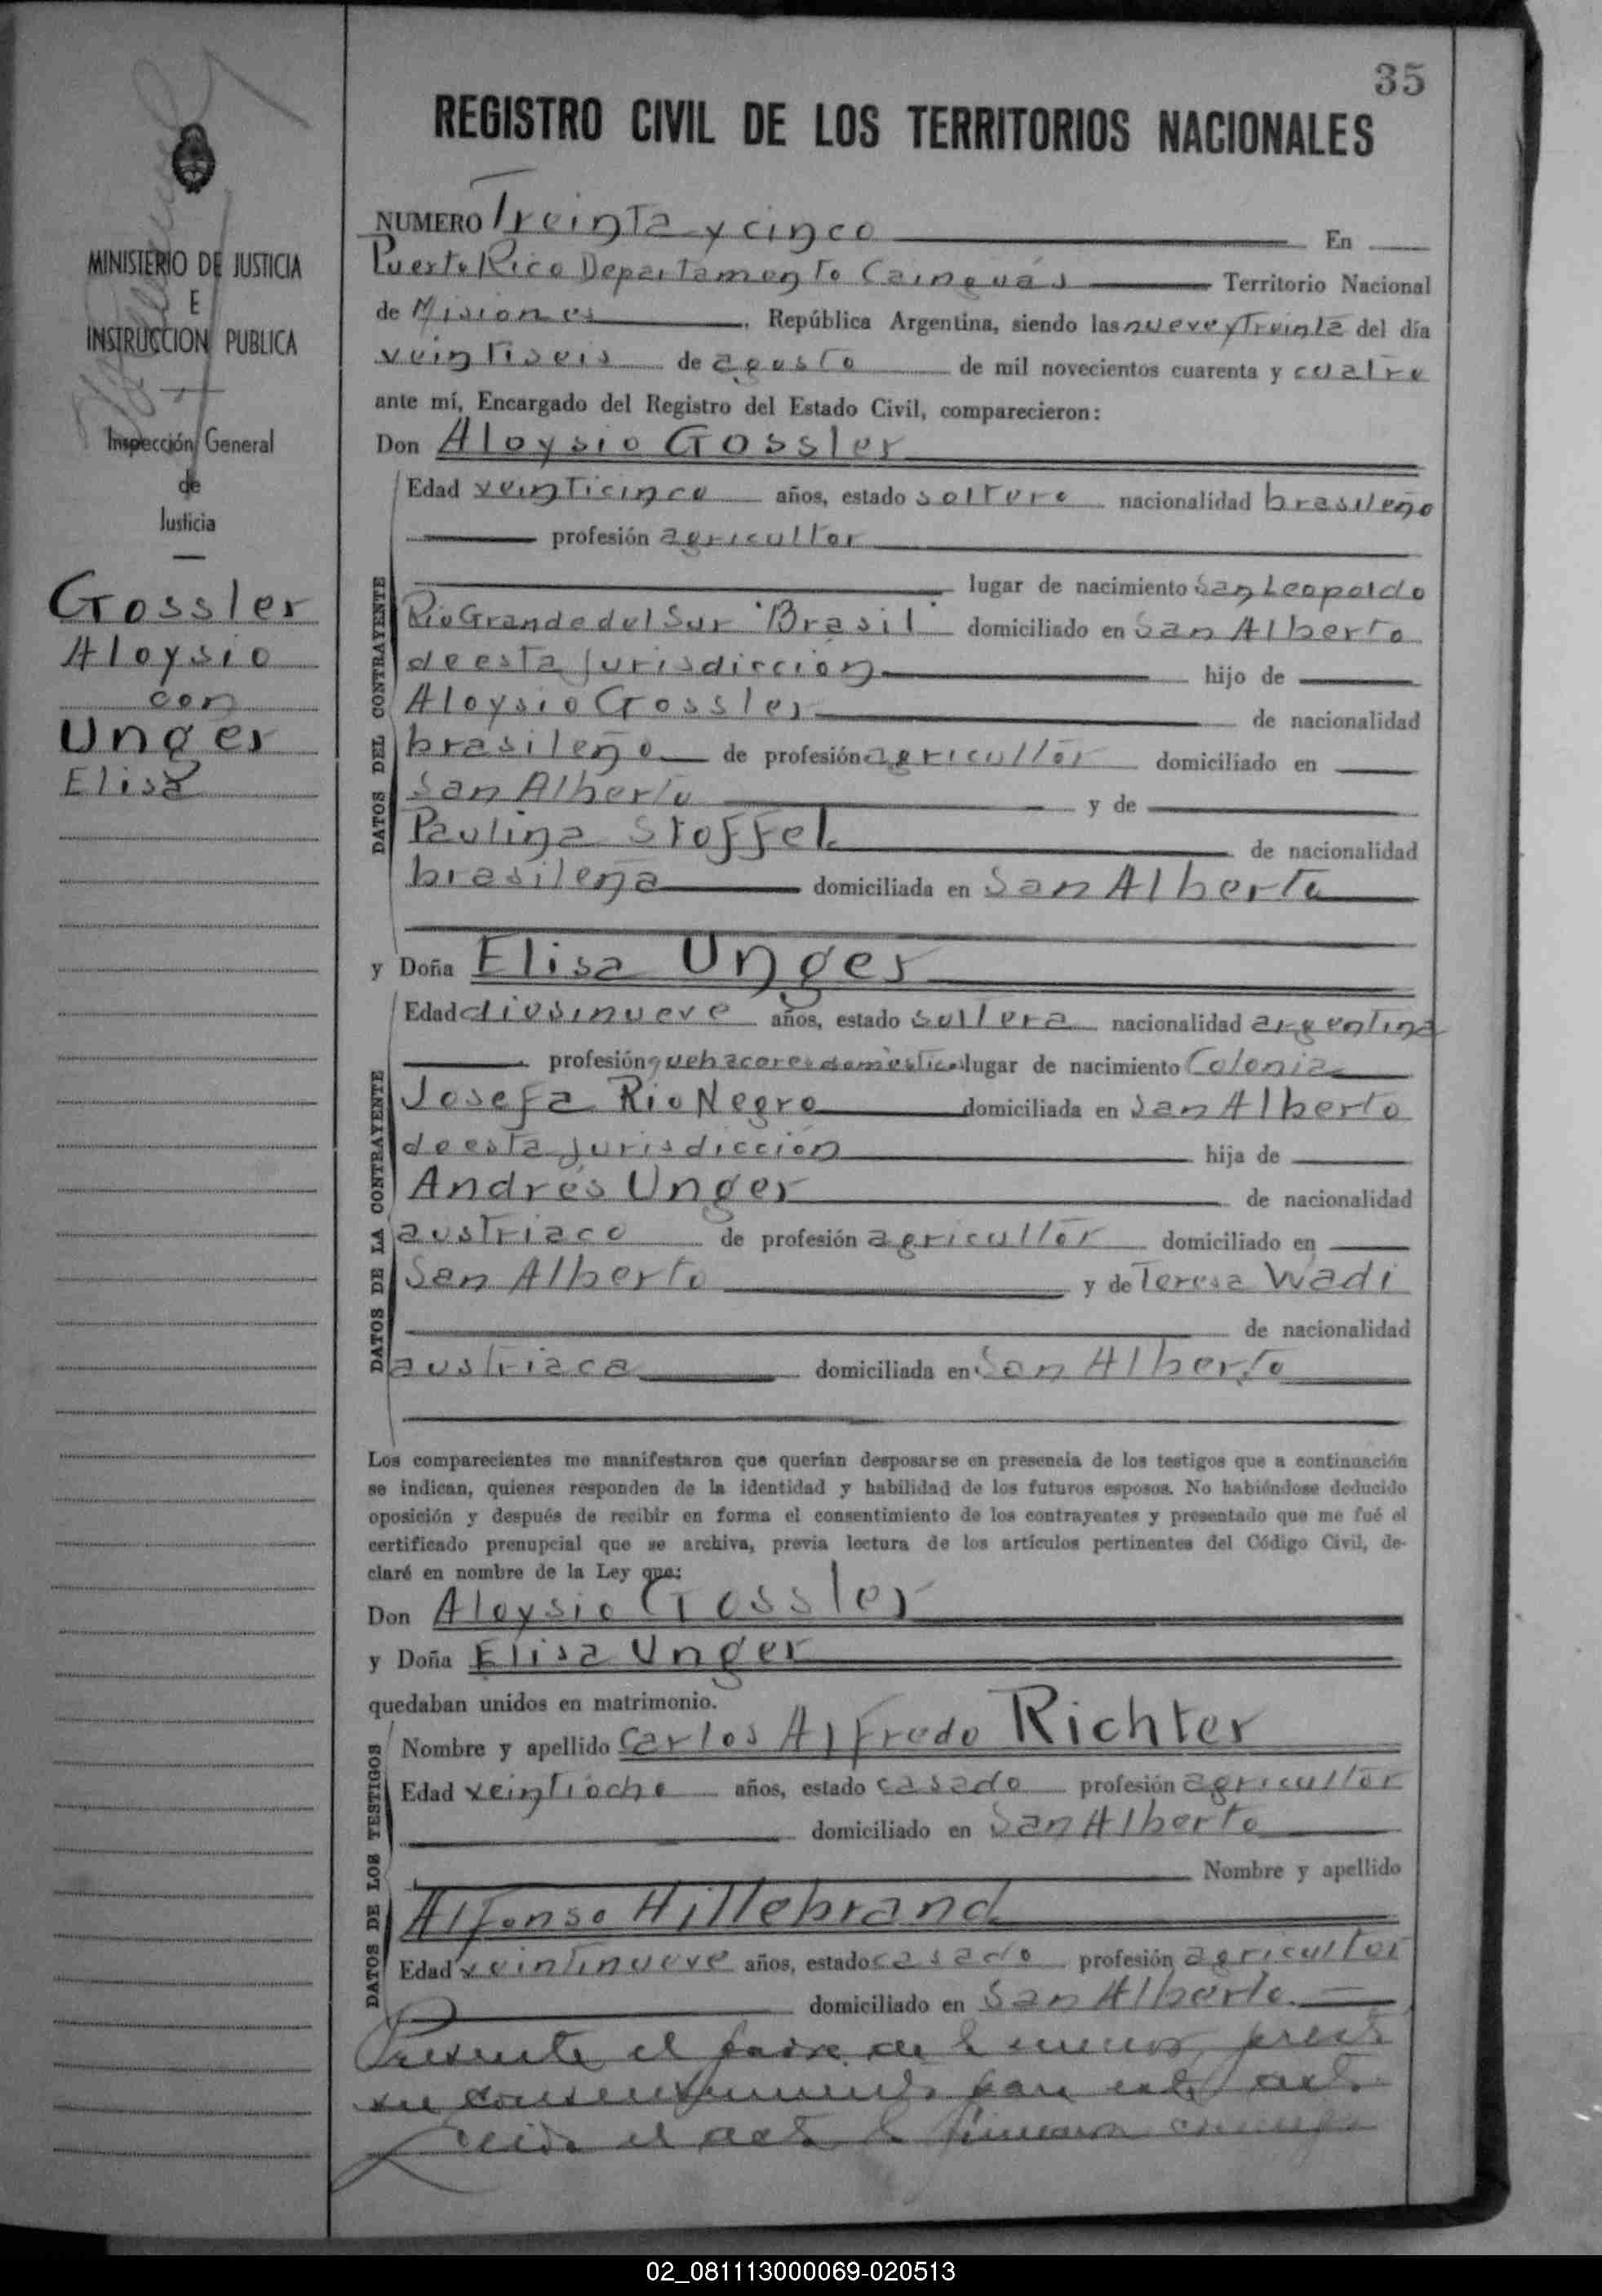 35
REGISTRO CIVIL DE LOS TERRITORIOS NACIONALES
MINISTERIO DE JUSTICIA
E
INSTRUCCION PUBLICA
Inspección General
de
Justicia
Gossler
Aloysio
con
Unger
Elisa
NUMERO Treinta y cinco En
Puerto Rico Departamento Cainguás Territorio Nacional
de Misiones, República Argentina, siendo las nueve y Treinta del día
veintiseis de agosto de mil novecientos cuarenta y cuatro
ante mí, Encargado del Registro del Estado Civil, comparecieron:
Don Aloysio Gossler
DATOS DEL CONTRAYENTE
Edad veinticinco años, estado soltero nacionalidad brasileño
profesión agricultor
lugar de nacimiento San Leopoldo
Rio Grande del Sur "Brasil" domiciliado en San Alberto
de esta jurisdicción hijo de
Aloysio Gossler de nacionalidad
brasileño de profesión agricultor domiciliado en
San Alberto y de
Paulina Stoffel de nacionalidad
brasileña domiciliada en San Alberto
y Doña Elisa Unger
DATOS DE LA CONTRAYENTE
Edad diesinueve años, estado soltera nacionalidad argentina
profesión quehaceres domésticos lugar de nacimiento Colonia
Josefa Rio Negro domiciliada en San Alberto
de esta jurisdicción hija de
Andrés Unger de nacionalidad
austriaco de profesión agricultor domiciliado en
San Alberto y de Teresa Wadi
de nacionalidad
austriaca domiciliada en San Alberto
Los comparecientes me manifestaron que querían desposarse en presencia de los testigos que a continuación
se indican, quienes responden de la identidad y habilidad de los futuros esposos. No habiéndose deducido
oposición y después de recibir en forma el consentimiento de los contrayentes y presentado que me fué el
certificado prenupcial que se archiva, previa lectura de los artículos pertinentes del Código Civil, de-
claré en nombre de la Ley que:
Don Aloysio Gossler
y Doña Elisa Unger
quedaban unidos en matrimonio.
DATOS DE LOS TESTIGOS
Nombre y apellido Carlos Alfredo Richter
Edad veintiocho años, estado casado profesión agricultor
domiciliado en San Alberto
Nombre y apellido
Alfonso Hillebrand
Edad veintinueve años, estado casado profesión agricultor
domiciliado en San Alberto.
Presente el padre de la menor presta
su consentimiento para este acto
Leida el acta la firmaron conmigo
02_081113000069-020513